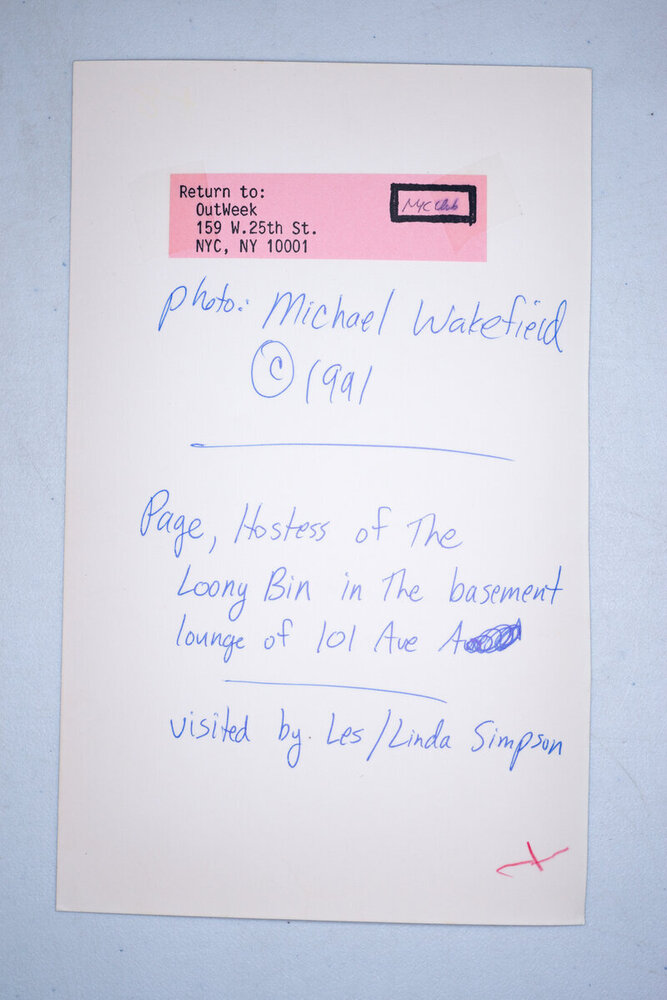 Return to:
OutWeek
159 W.25th St.
NYC, NY 10001
NYC Club
photo: Michael Wakefield
© 1991
Page, Hostess of The
Loony Bin in The basement
lounge of 101 Ave A
visited by. Les/Linda Simpson